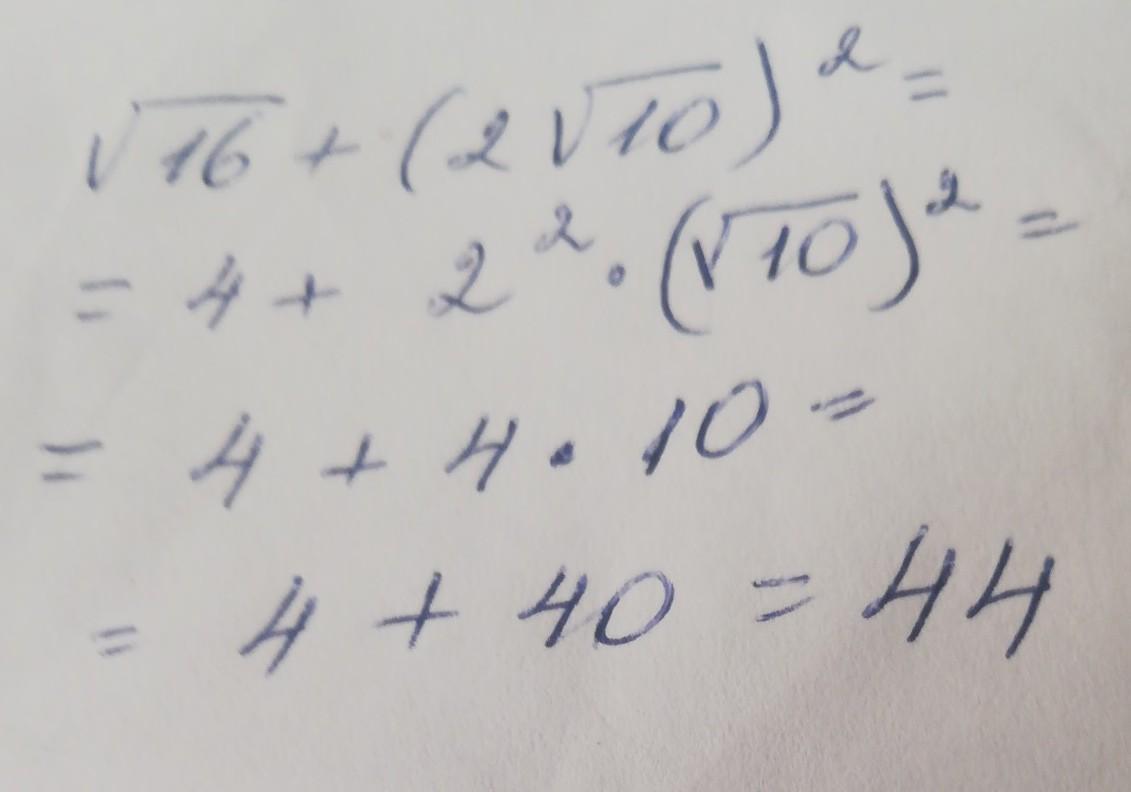 √16 + (2√10)² =
= 4 + 2² · (√10)² =
= 4 + 4 · 10 =
= 4 + 40 = 44